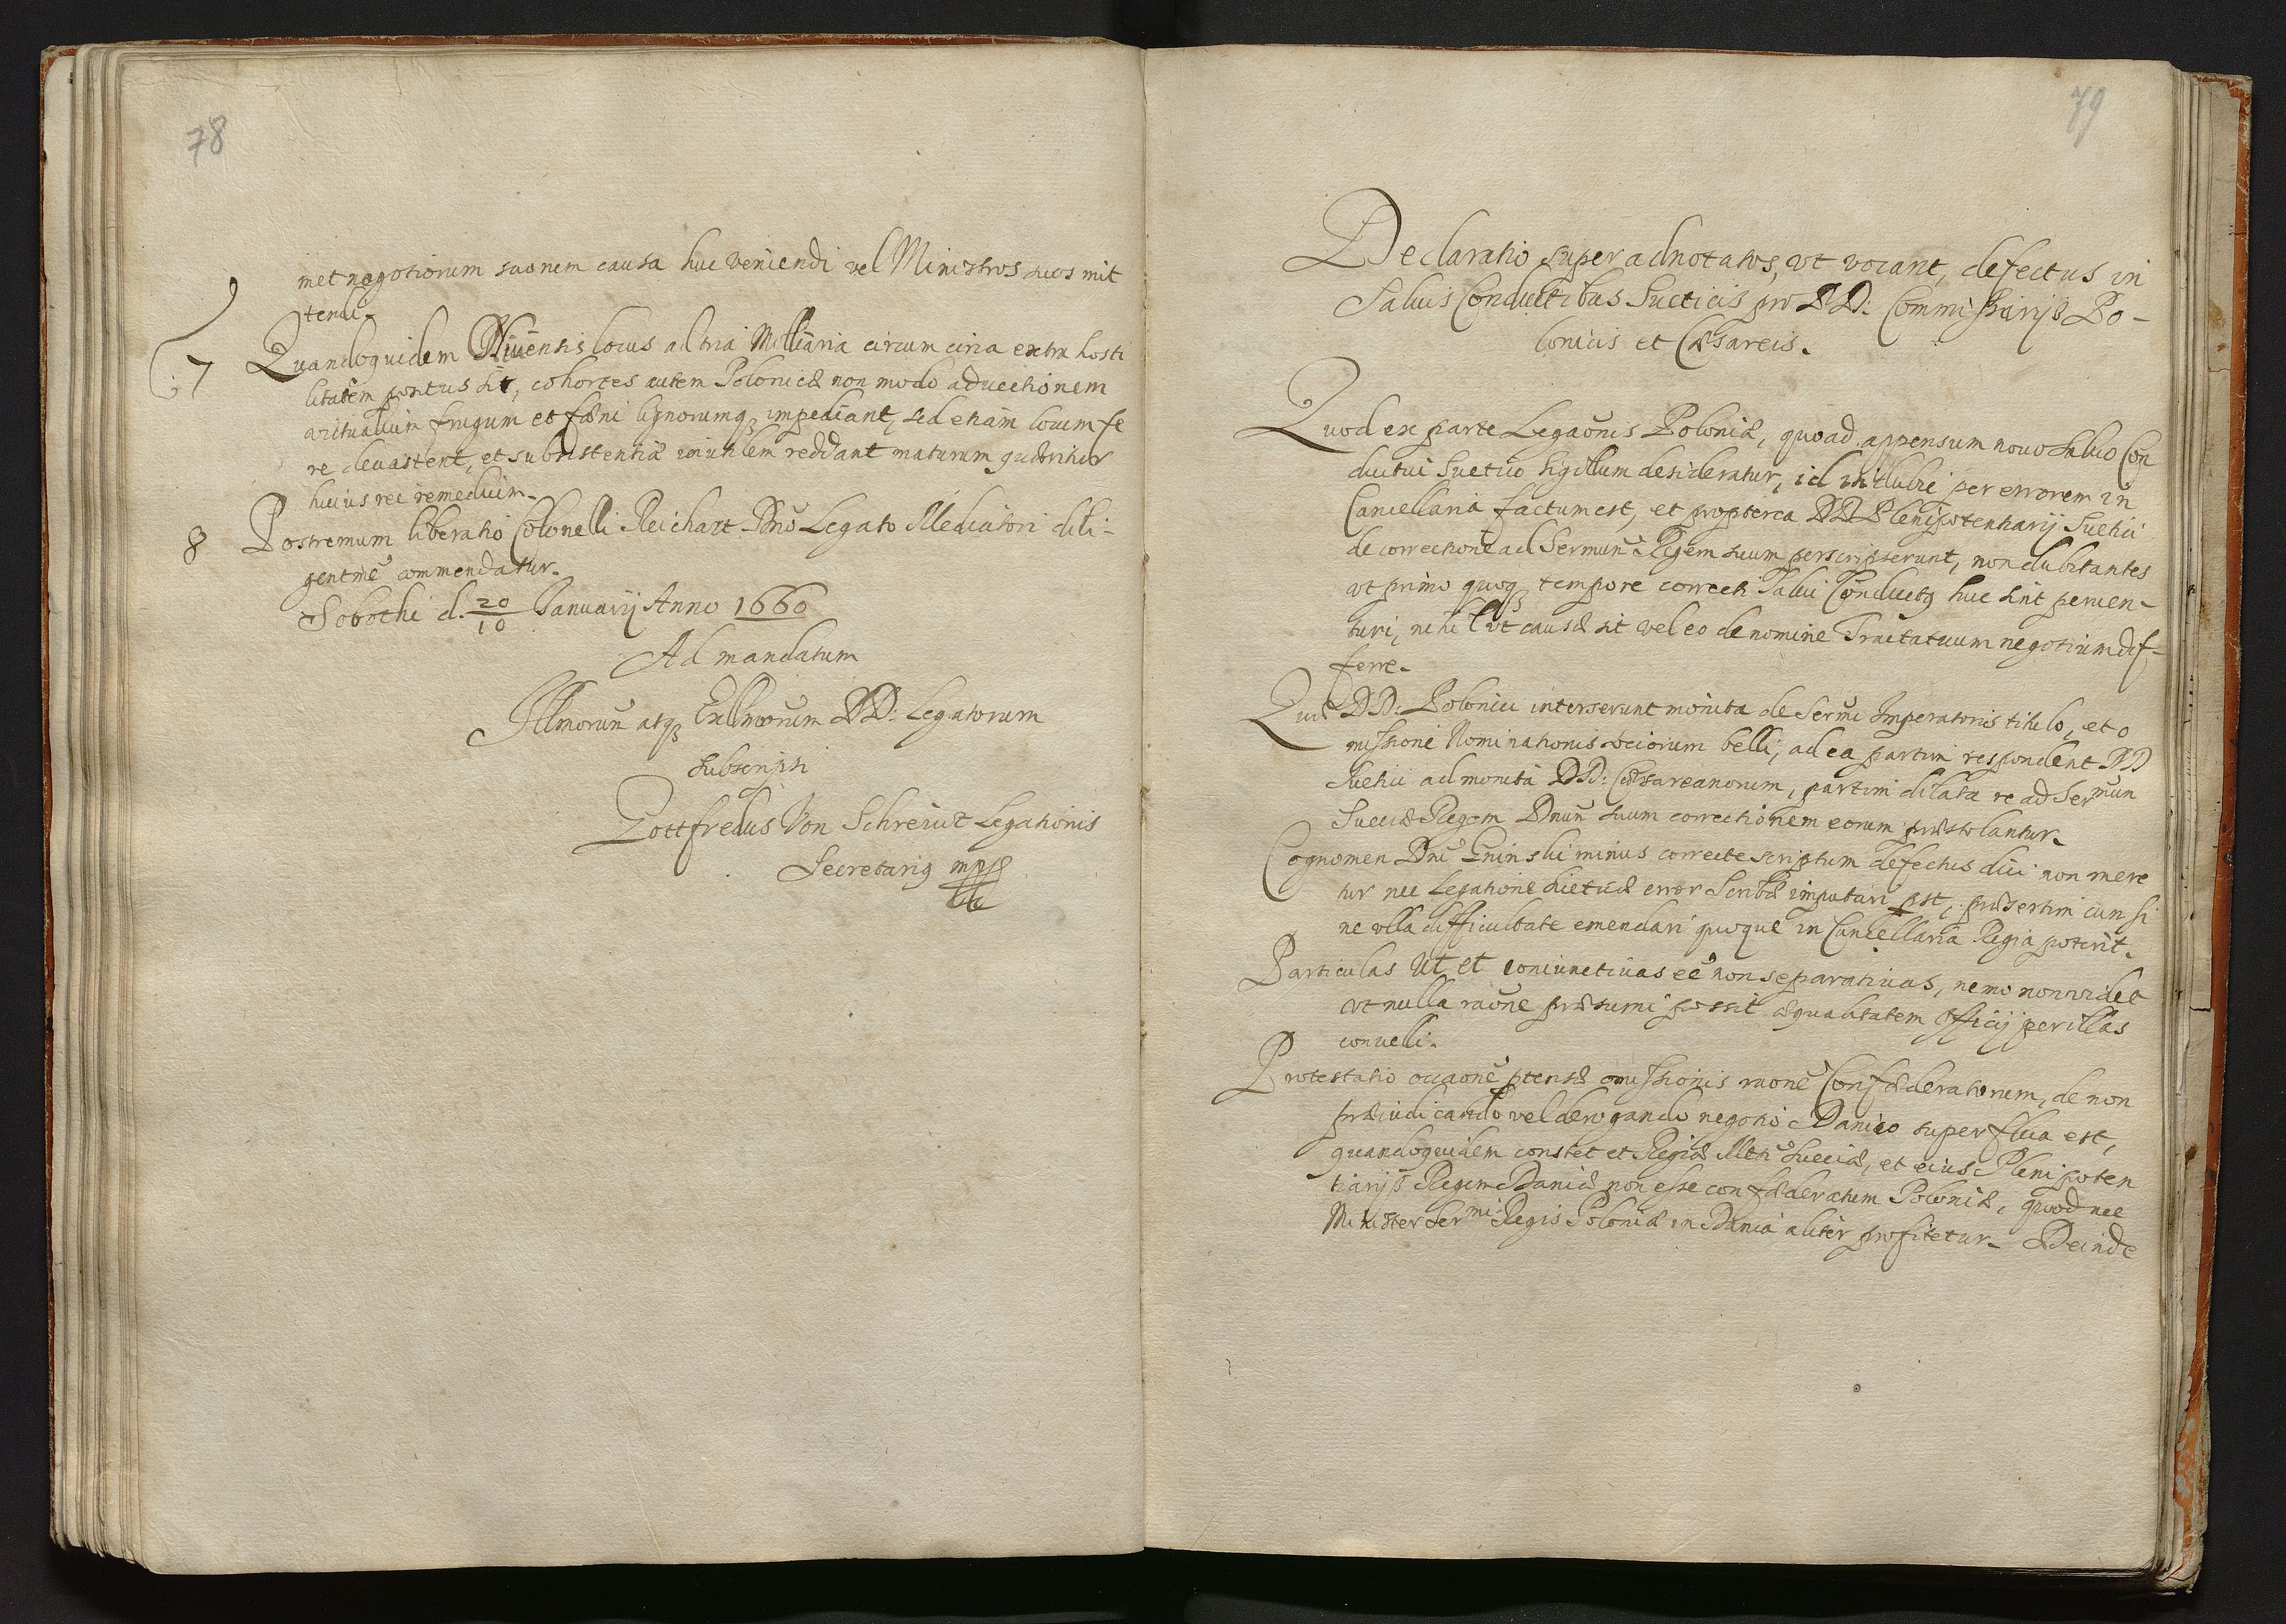 78
met negotiorum suorum causa huc veniendi vel Ministros suos mit
tendi.
7 Quandoquidem Oliuensis locus ad tria Milliaria circum circa extra hosti
litatem positus sit, cohortes autem Polonicæ non modo aduectionem
victualium frugum et fœni lignorumq impediant, sed etiam locum fe
re deuastent, et subsistentiæ inutilem reddant maturum quæritur
huius rei remedium.
8 Postremum liberatio Colonelli Reichart Dno Legato Mediatori dili-
gentme commendatur.
Sobothi d. 20/10 Januarij Anno 1660
Ad mandatum
Illmorum atq Exllmorum DD: Legatorum
subscripsi
Gottfredus Von Schreiut Legationis
Secretarig mpp
79
Declaratio super adnotatos, vt vocant, defectus in
Saluis Conductibus Sueticis pro DD: Commissarijs Po-
lonicis et Cæsareis.
Quod ex parte Legaonis Poloniæ, quoad appensum nouo Saluo Con
ductui Suetico sigillum desideratur, id indubie per errorem in
Cancellaria factum est, et propterea DD Plenipotentiarij Suetici
de correctione ad Sermum Regem suum perscripserunt, non dubitantes
vt primo quoq tempore correcti Salui Conductg huc sint peruen-
turi, nihil vt causæ sit vel eo de nomine Tractatuum negotium dif-
ferre.
Quæ DD: Polonici interserunt monita de Sermi Imperatoris titulo, et o
missione Nominationis sociorum belli, ad ea partim respondent DD
Suetici ad monita DD: Cæsareanorum, partim dilata re ad Sermum
Sueciæ Regem Dnum suum correctionem eorum præstolantur.
Cognomen Dni Gninski minus correcte scriptum defectus dici non mere
tur nec Legatione Sueticæ error Scribæ imputari pst, præsertim cum si
ne vlla difficultate emendari quoque in Cancellaria Regia poterit.
Particulas Ut et coniunctiuas eé non separatiuas, nemo non videt
vt nulla raone præsumi possit æqualitatem Officij per illas
conuelli.
Protestatio occaone ptensæ omissionis raone Confæderatorum, de non
præiudicando vel derogando negotio Danico superflua est,
quandoquidem constet et Regiæ Mtti Sueciæ, et eius Plenipoten
tiarijs Regem Daniæ non esse confæderatum Poloniæ, quod nec
Minister Sermi Regis Poloniæ in Dania aliter profitetur. Deinde